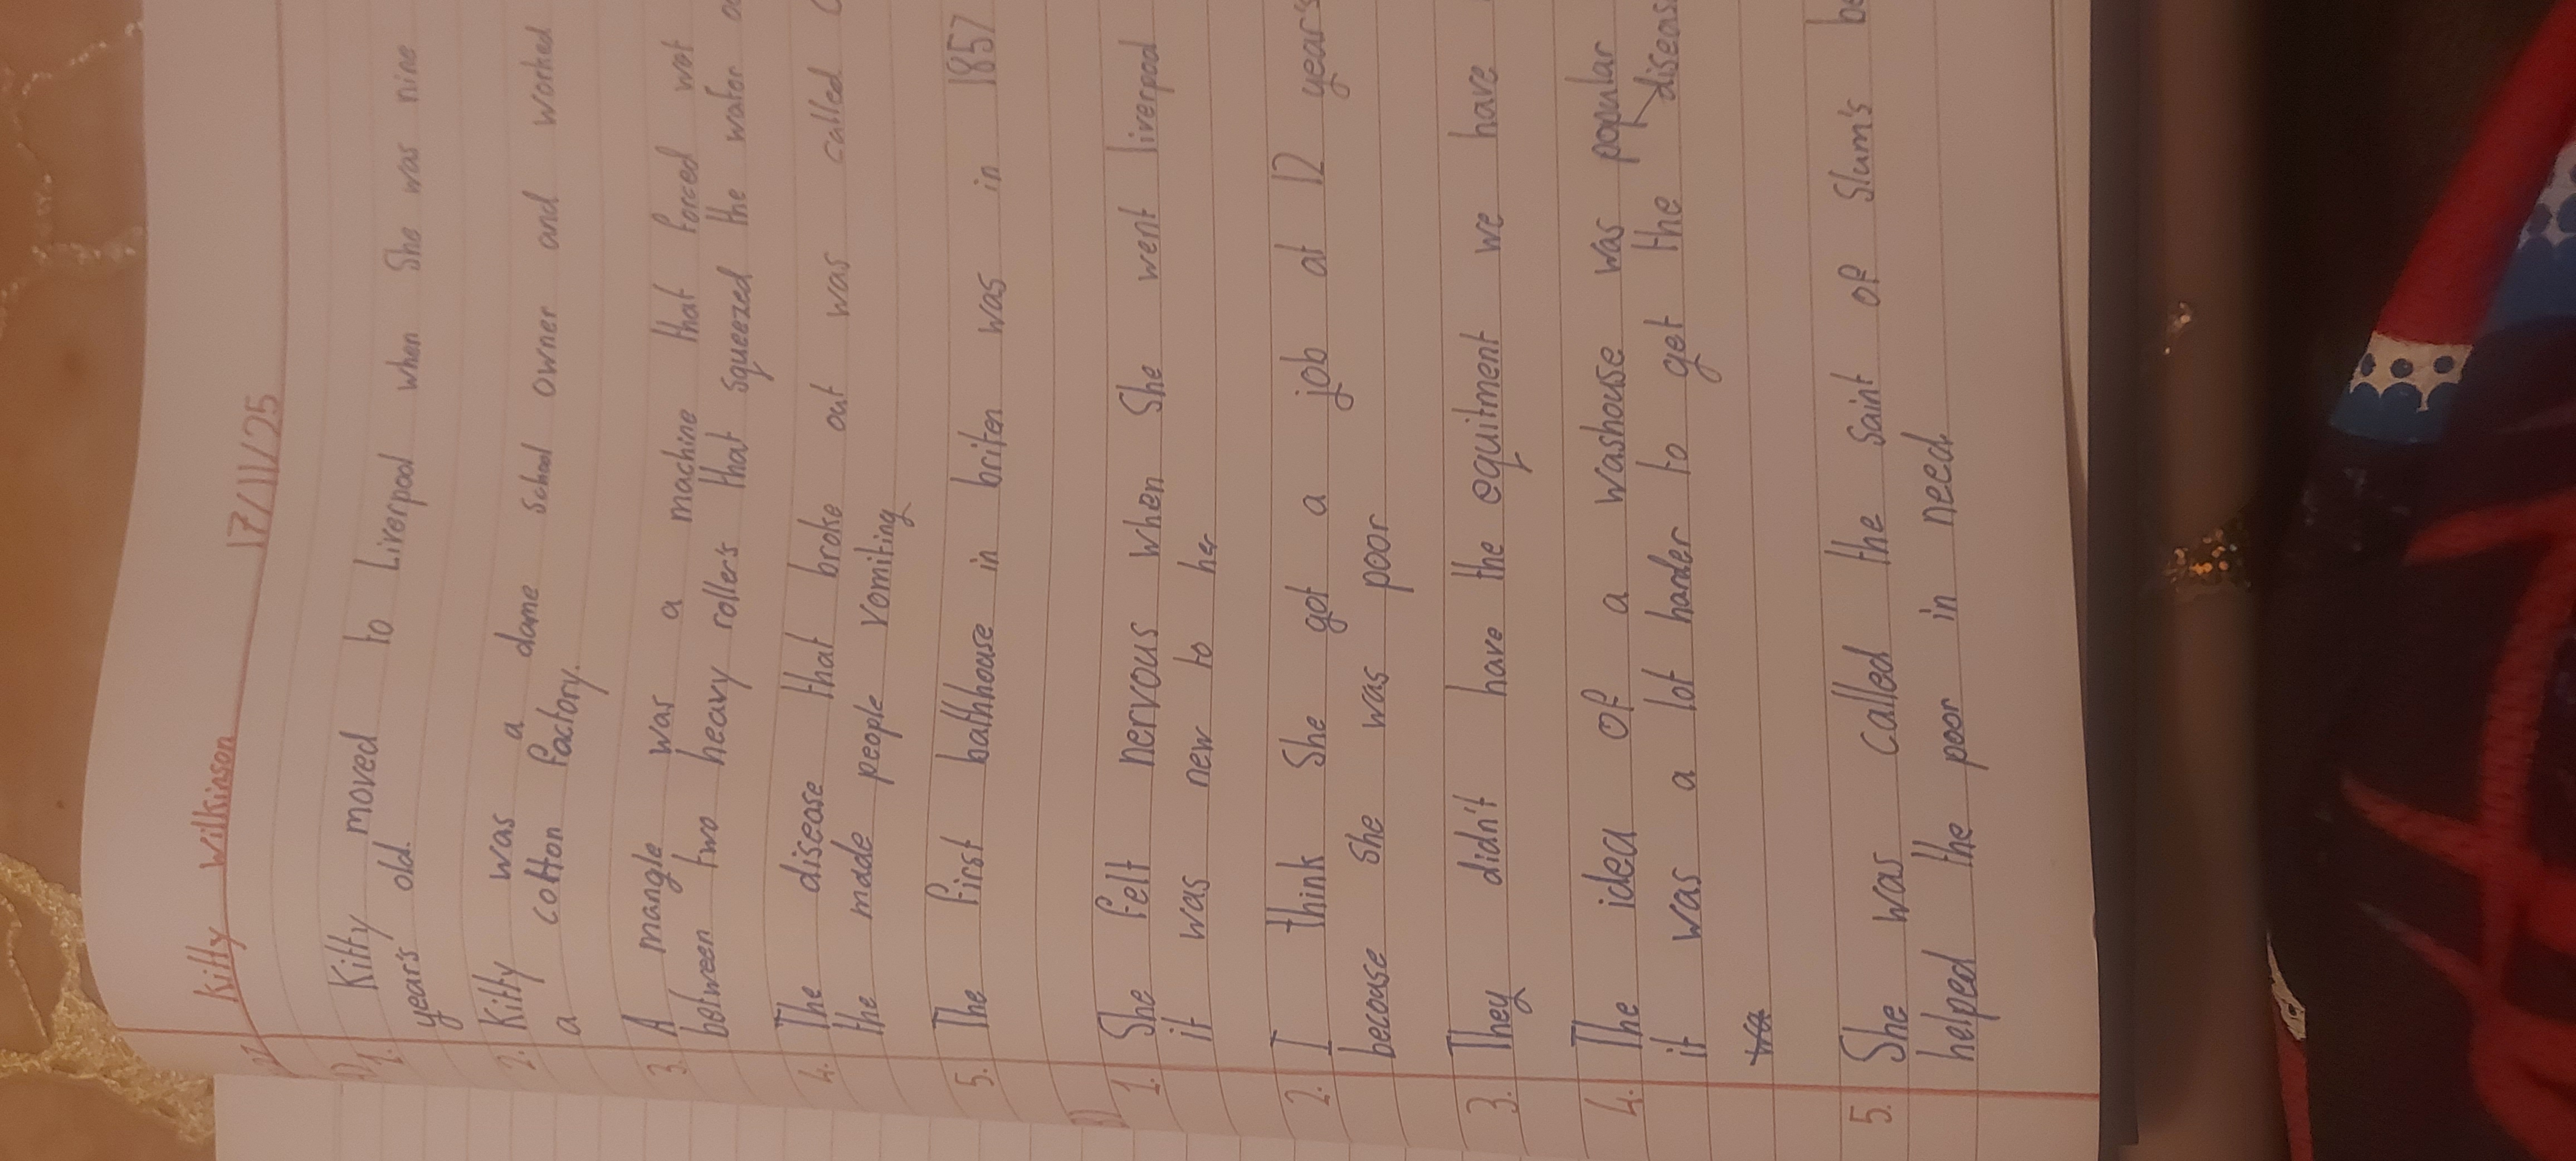 Kitty Wilkinson 17/11/25
1. Kitty moved to Liverpool when She was nine
year's old.
2. Kitty was a dame school owner and worked
a cotton factory.
3. A mangle was a machine that forced wet
between two heavy roller's that squeezed the water
4. The disease that broke out was called
the made people vomiting
5. The first bathhouse in briten was in 1857
1. She felt nervous when She went liverpool
it was new to her
2. I think She got a job at 12 year's
because She was poor
3. They didn't have the equitment we have
4. The idea of a washouse was popular
it was a lot harder to get the diseas
5. She was called the saint of Slum's be
helped the poor in need.